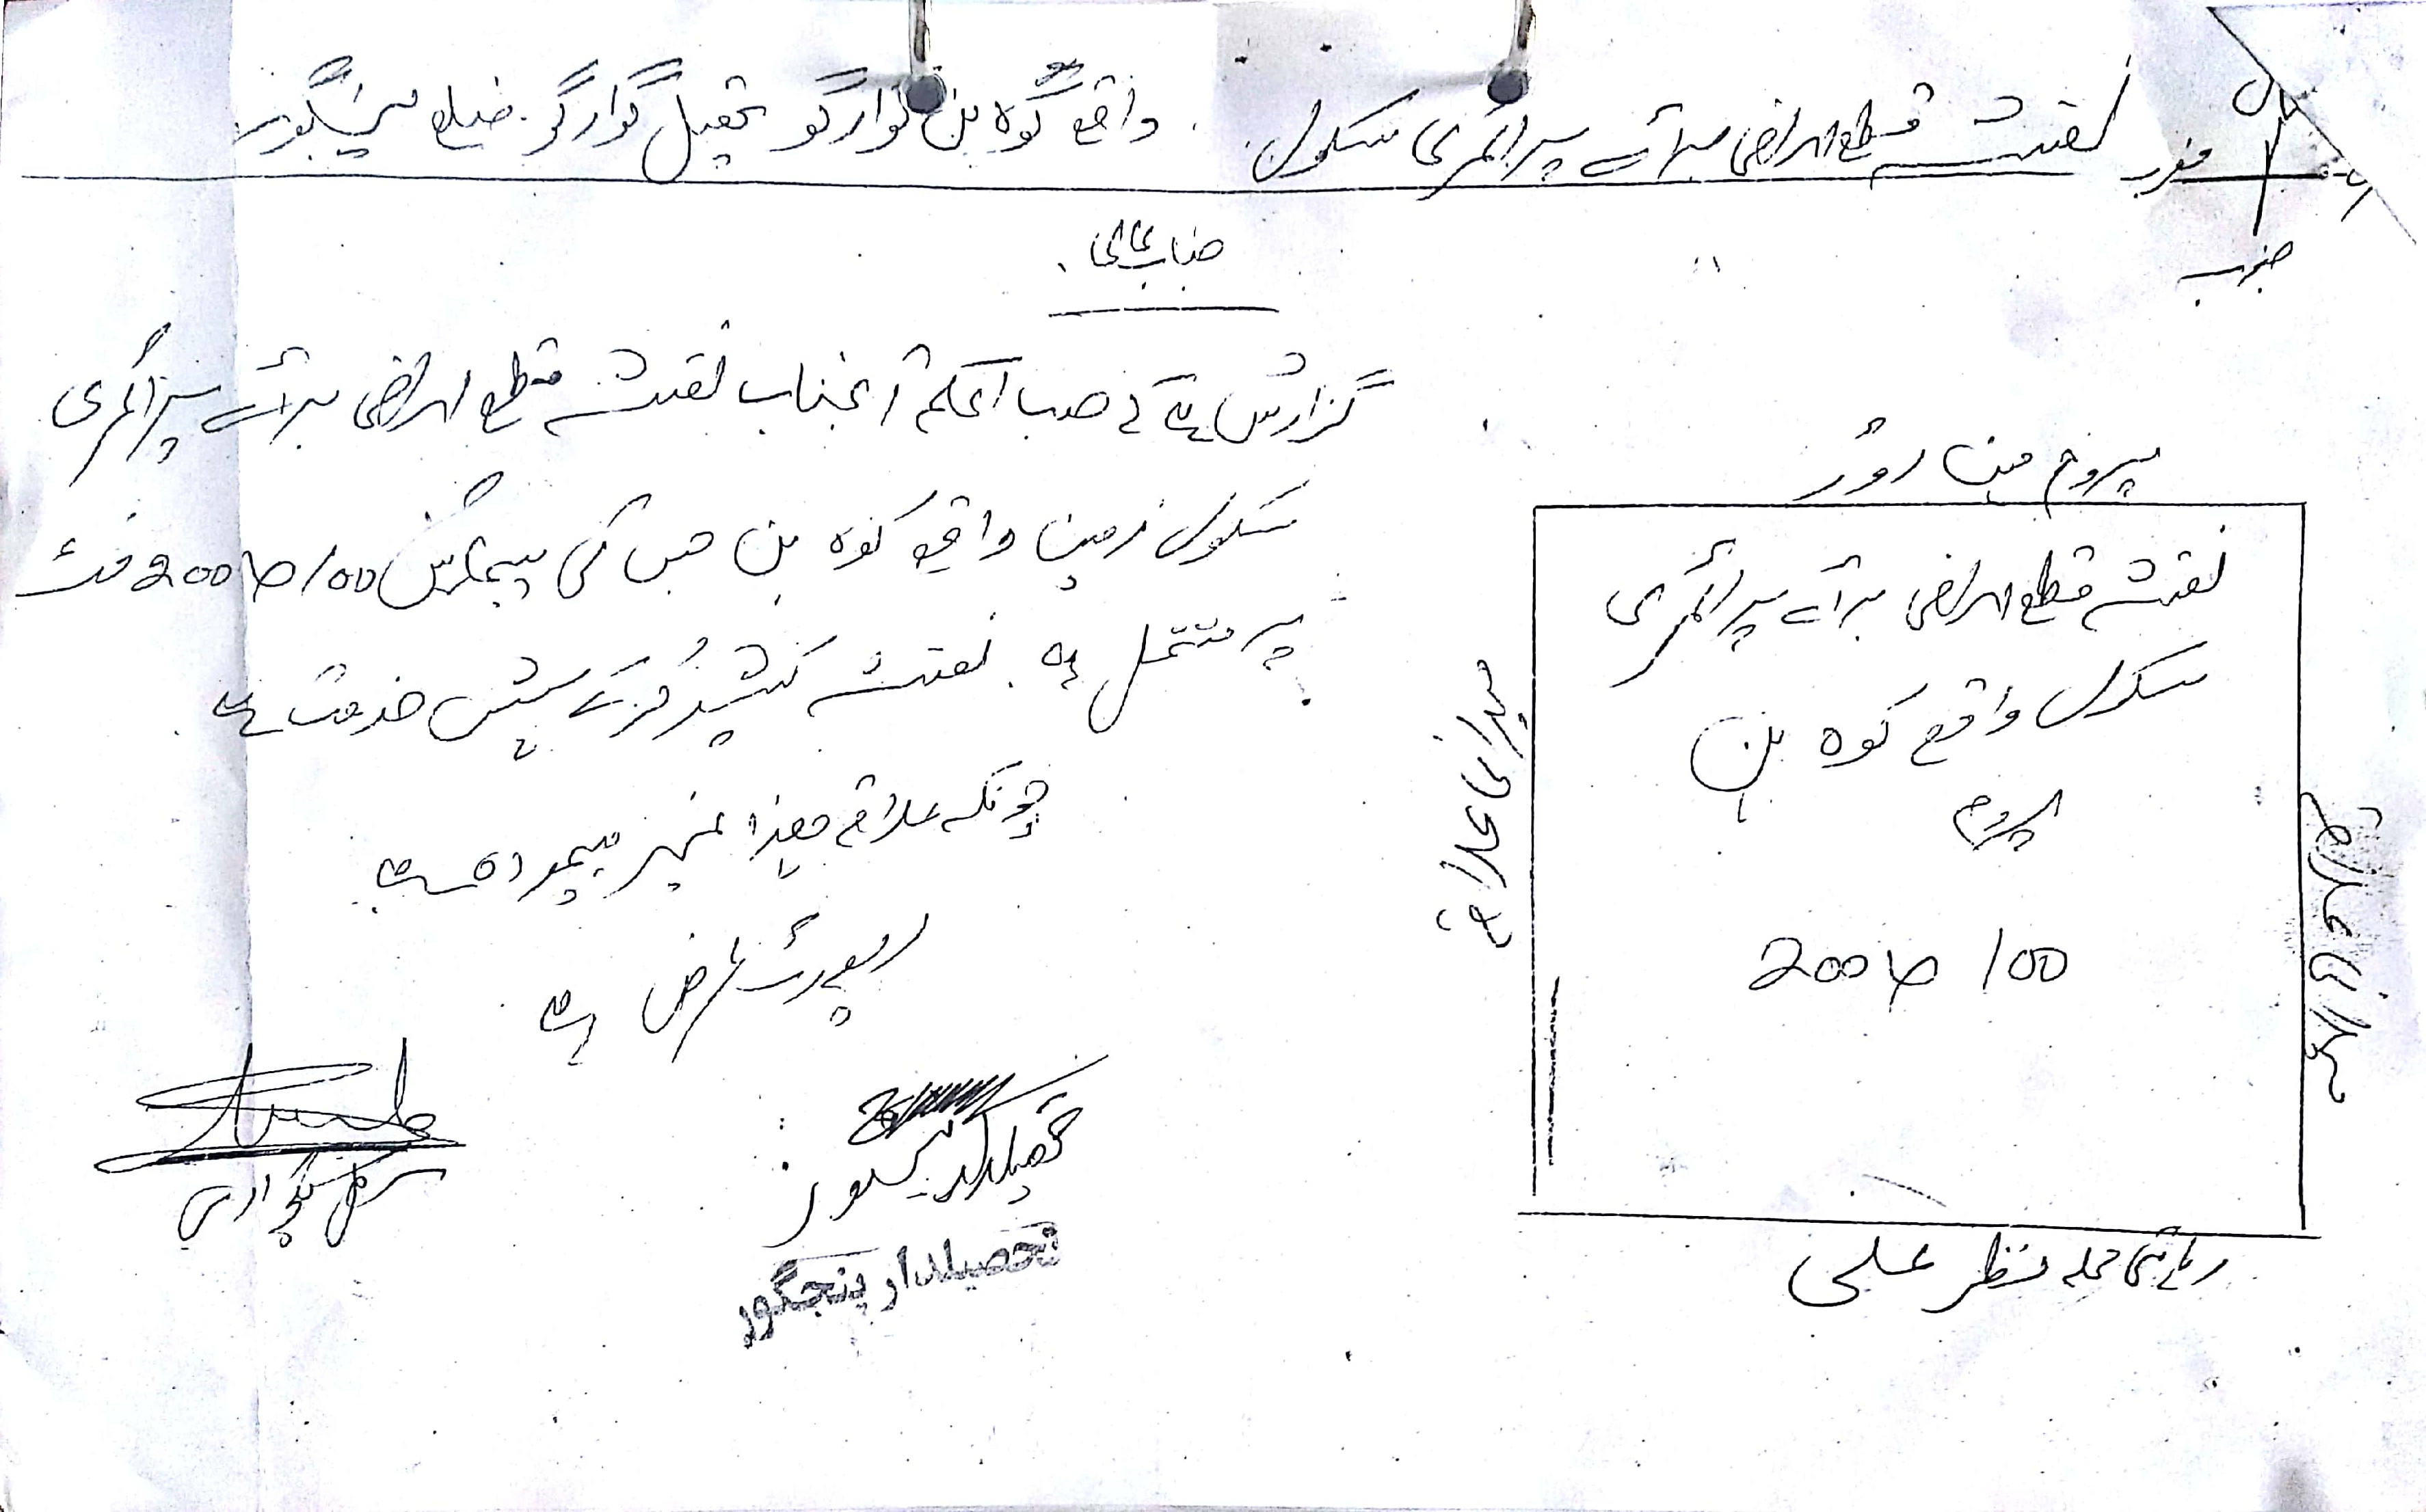 نقشہ قطع اراضی برائے پرائمری سکول۔ واقع کوہ بن گوارگو تحصیل گوارگو۔ ضلع پنجگور
مغرب
جنوب
جناب عالی۔
گزارش ہے کے حسب الحکم آنجناب نقشہ قطع اراضی برائے پرائمری
سکول زمین واقع کوہ بن جس کی پیمائش 100 x 200 فٹ
پر مشتمل ہے۔ نقشہ کشید کرکے پیش خدمت ہے
چونکہ علاقہ ھذا غیر پیمودہ ہے۔
رپورٹ عرض ہے
تحصیلدار پنجگور
تحصیلدار پنجگور
پٹواری
پروم مین روڈ
نقشہ قطع اراضی برائے پرائمری
سکول واقع کوہ بن
پروم
200 x 100
میدانی علاقہ
میدانی علاقہ
رہائشی محلہ نظر علی